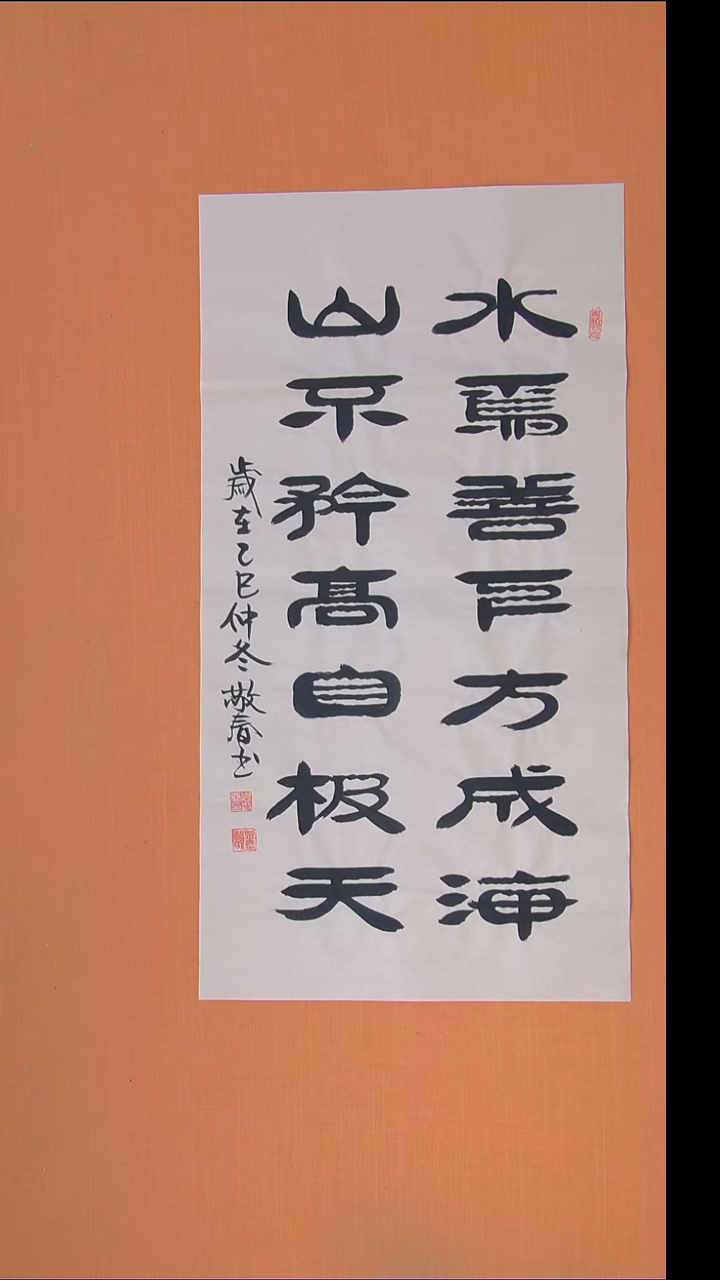 水焉善方成海
山不矜高自极天
歲在乙巳仲冬敬春书